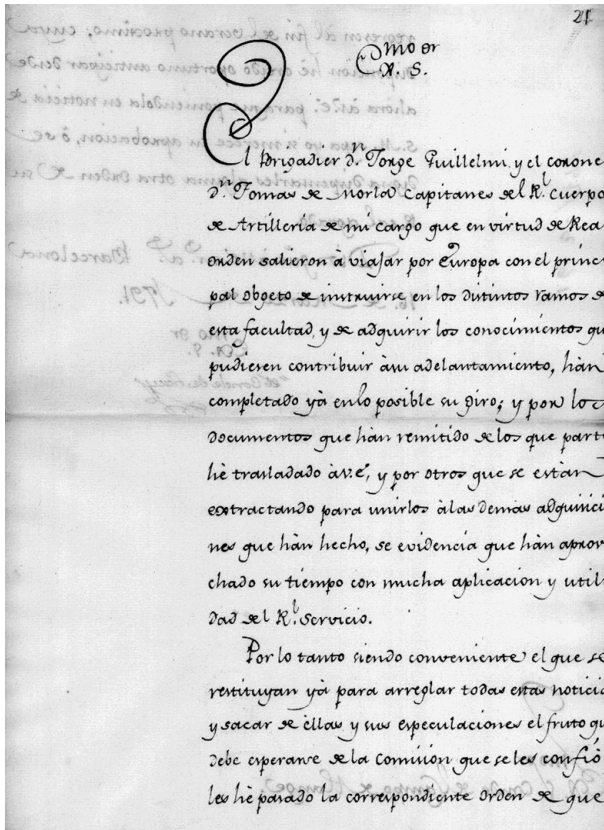 21
Exmo Sr
R. S.
El Brigadier Dn. Jorge Guillelmi y el corone
Dn. Tomas de Morla Capitanes del Rl. Cuerpo
de Artilleria de mi cargo que en virtud de Rea
orden salieron à viajar por Europa con el princi
pal obgeto de instruirse en los distintos ramos d
esta facultad, y de adquirir los conocimientos qu
pudiesen contribuir à su adelantamiento, hàn
completado yà en lo posible su giro; y por los
documentos que hàn remitido de los que parte
hè trasladado à V.E., y por otros que se estàn
extractando para unirlos à las demàs adquisici
nes que hàn hecho, se evidencia que hàn aprov
chado su tiempo con mucha aplicacion y utili
dad del Rl. Servicio.
Por lo tanto siendo conveniente el que se
restituyan yà para arreglar todas estas noticia
y sacar de èllas y sus especulaciones el fruto qu
debe esperarse de la Comision que se les confiò
les hè pasado la correspondiente orden de que